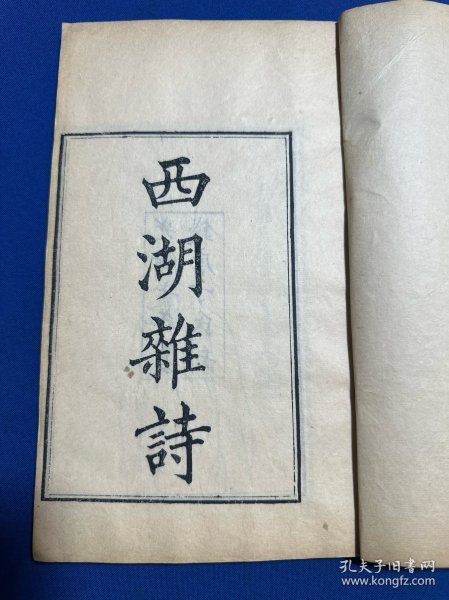 西湖雜詩
孔夫子旧书网
www.kongfz.com